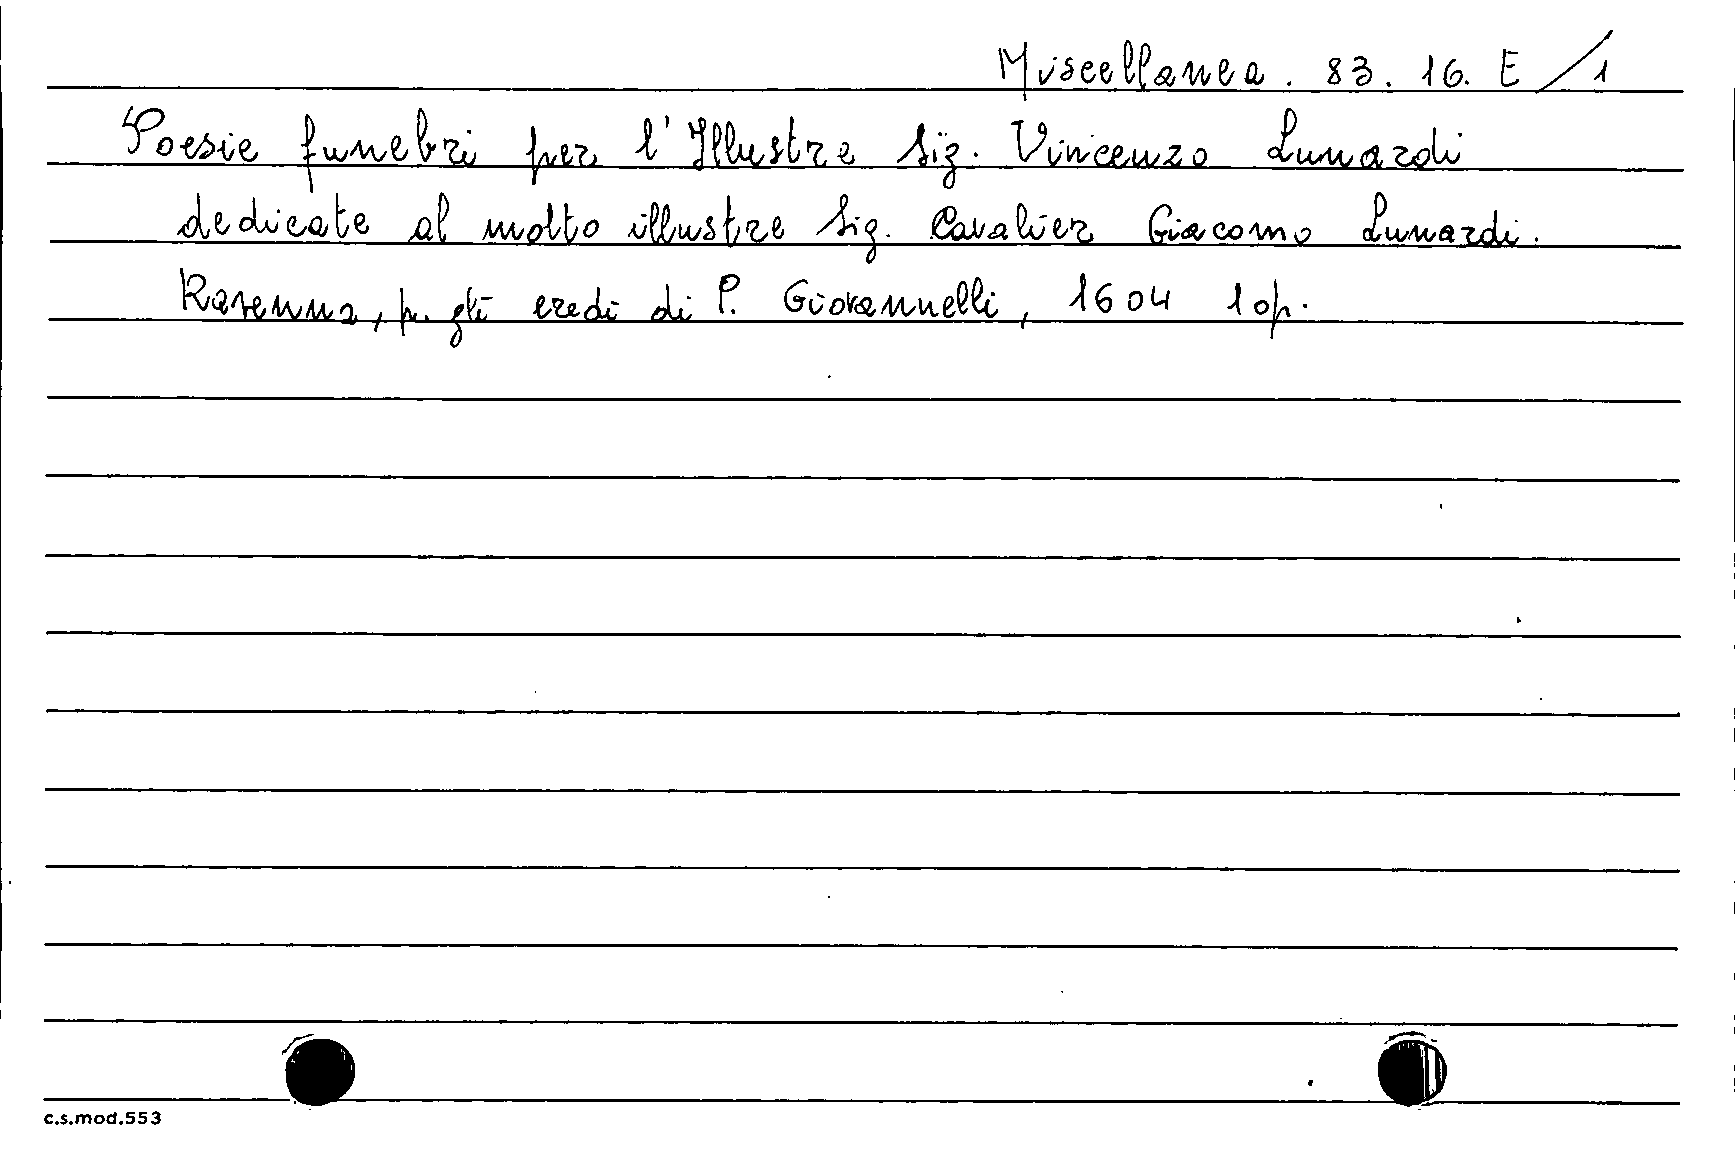 Miscellanea. 83. 16. E /1
Poesie funebri per l'Illustre Sig. Vincenzo Lunardi
dedicate al molto illustre Sig. Cavalier Giacomo Lunardi.
Ravenna, p. gli eredi di P. Giovannelli, 1604 1 op.
c.s.mod.553